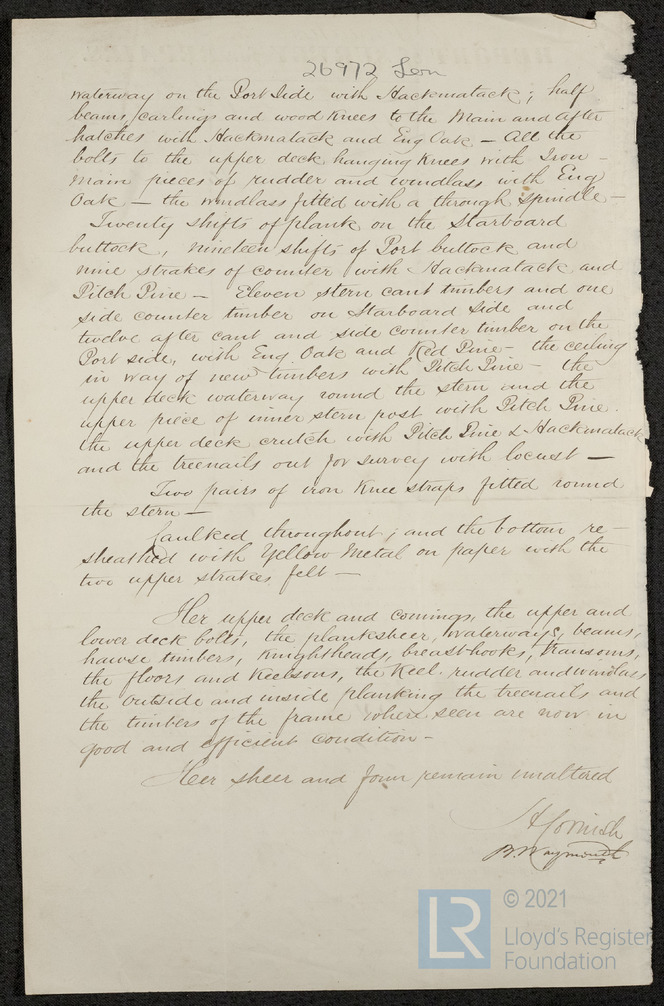 26972 Lon
waterway on the Port Side with Hackmatack; half
beams, carlings and wood Knees to the Main and after
hatches with Hackmatack and Eng Oak — All the
bolts to the upper deck hanging Knees with Iron —
Main pieces of rudder and windlass with Eng
Oak — the windlass fitted with a through spindle —
Twenty shifts of plank on the Starboard
buttock, nineteen shifts of Port buttock and
nine strakes of counter with Hackmatack and
Pitch Pine — Eleven stern cant timbers and one
side counter timber on Starboard Side and
twelve after cant and side counter timber on the
Port side, with Eng. Oak and Red Pine — the ceeling
in way of new timbers with Pitch Pine — the
upper deck waterway round the stern and the
upper piece of inner stern post with Pitch Pine.
the upper deck crutch with Pitch Pine & Hackmatack
and the treenails out for survey with locust —
Two pairs of iron Knee straps fitted round
the stern —
Caulked throughout; and the bottom re-
sheathed with Yellow Metal on paper with the
two upper strakes felt —
Her upper deck and comings, the upper and
lower deck bolts, the planksheer, waterways, beams,
hawse timbers, Knightheads, breasthooks, transoms,
the floors and Keelsons, the Keel. rudder and windlass
the outside and inside planking the treenails and
the timbers of the frame where seen are now in
good and efficient condition —
Her sheer and form remain unaltered
H Cornish
B. Waymouth
LR
© 2021
Lloyd's Register
Foundation